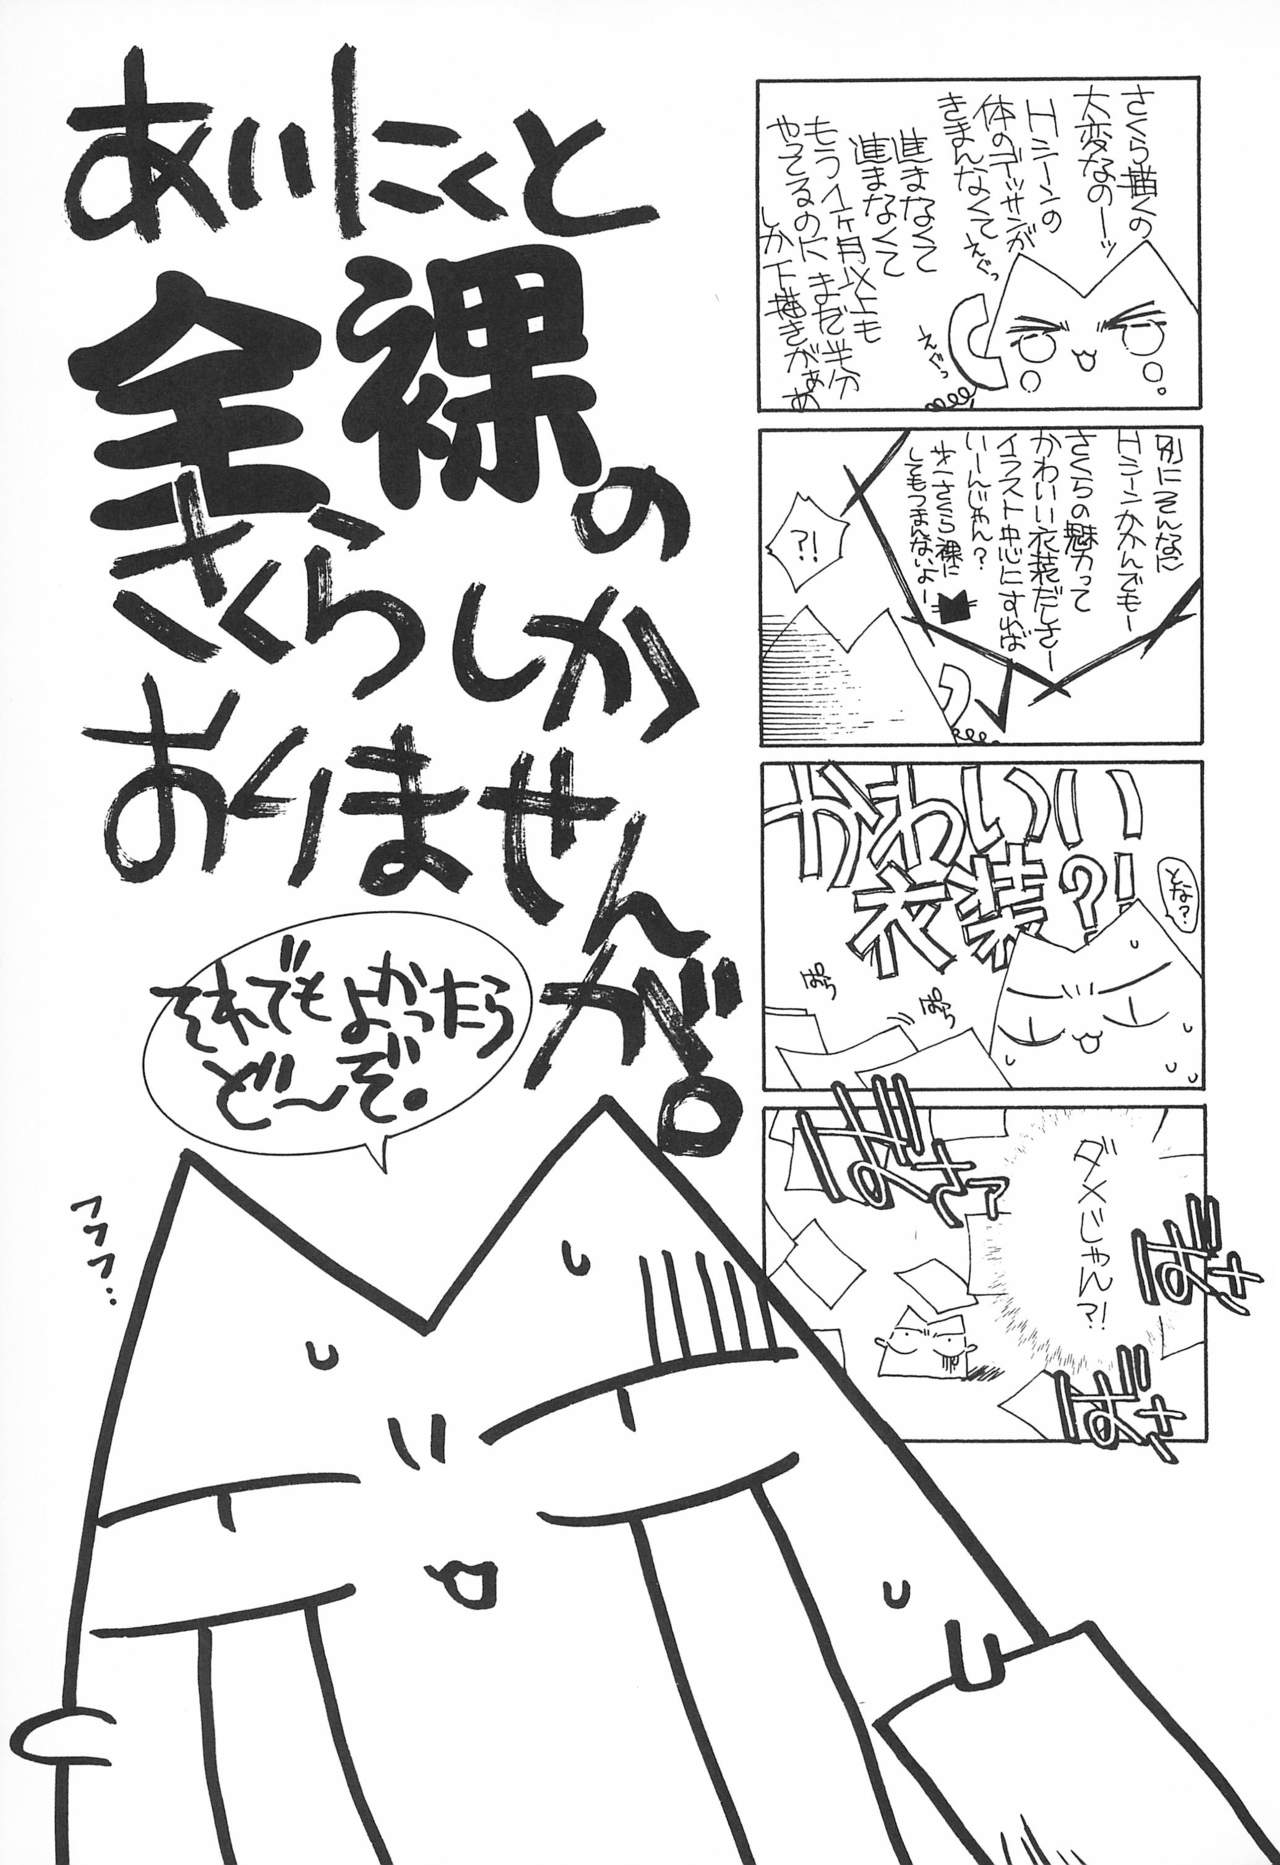 さくら描くの
大変なのーッ
Hシーンの
体のデッサンが
きまんなくて
えぐっ
進まなくて
進まなくて
もう1ヶ月以上も
やってるのにまだ半分
しか下描きがぁぁ
えぐっ
別にそんなに
Hシーンかかんでもー
さくらの魅力って
かわいい衣装だしさー
イラスト中心にすれば
いーんじゃん?
さくら裸に
してもつまんないよー
?!
かわいい
衣装?!
どな?
ぱら
ぱら
ダメじゃん?!
ばさァ
ばさ
ばさ
あいにくと
全裸の
さくらしか
おりませんが。
それでもよかったら
ど〜ぞ。
フフフ…